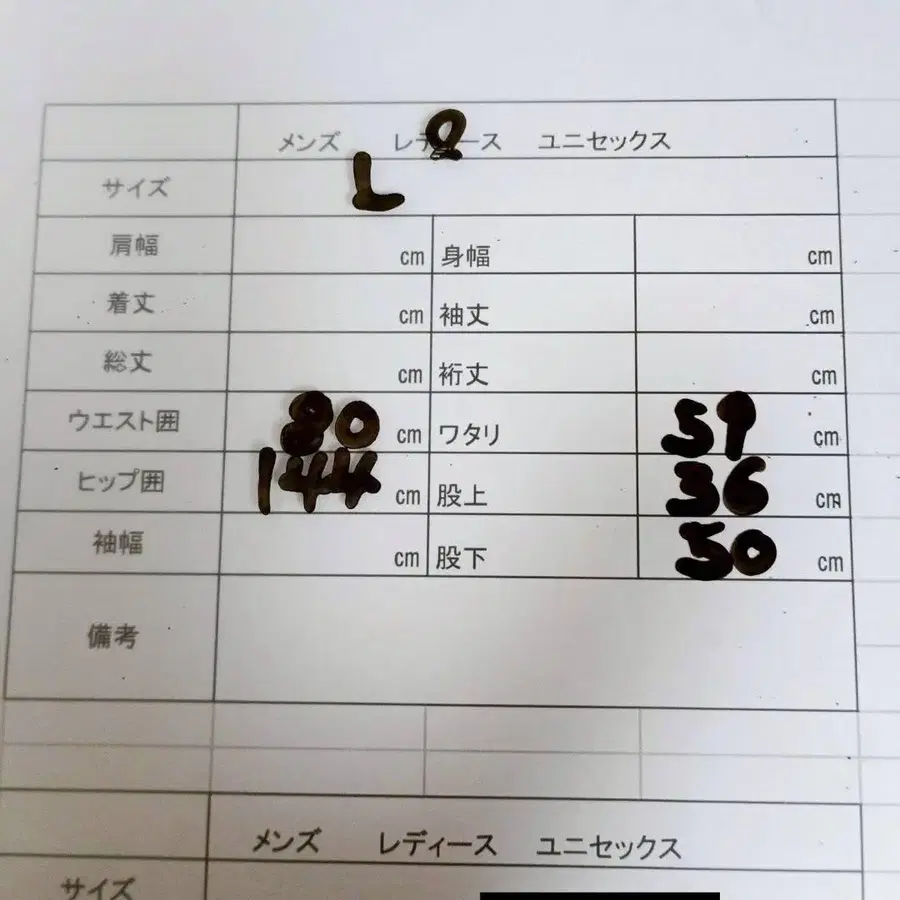 メンズ レディース ユニセックス
サイズ L
肩幅 cm 身幅 cm
着丈 cm 袖丈 cm
総丈 cm 裄丈 cm
ウエスト囲 80 cm ワタリ 59 cm
ヒップ囲 144 cm 股上 36 cm
袖幅 cm 股下 50 cm
備考
メンズ レディース ユニセックス
サイズ